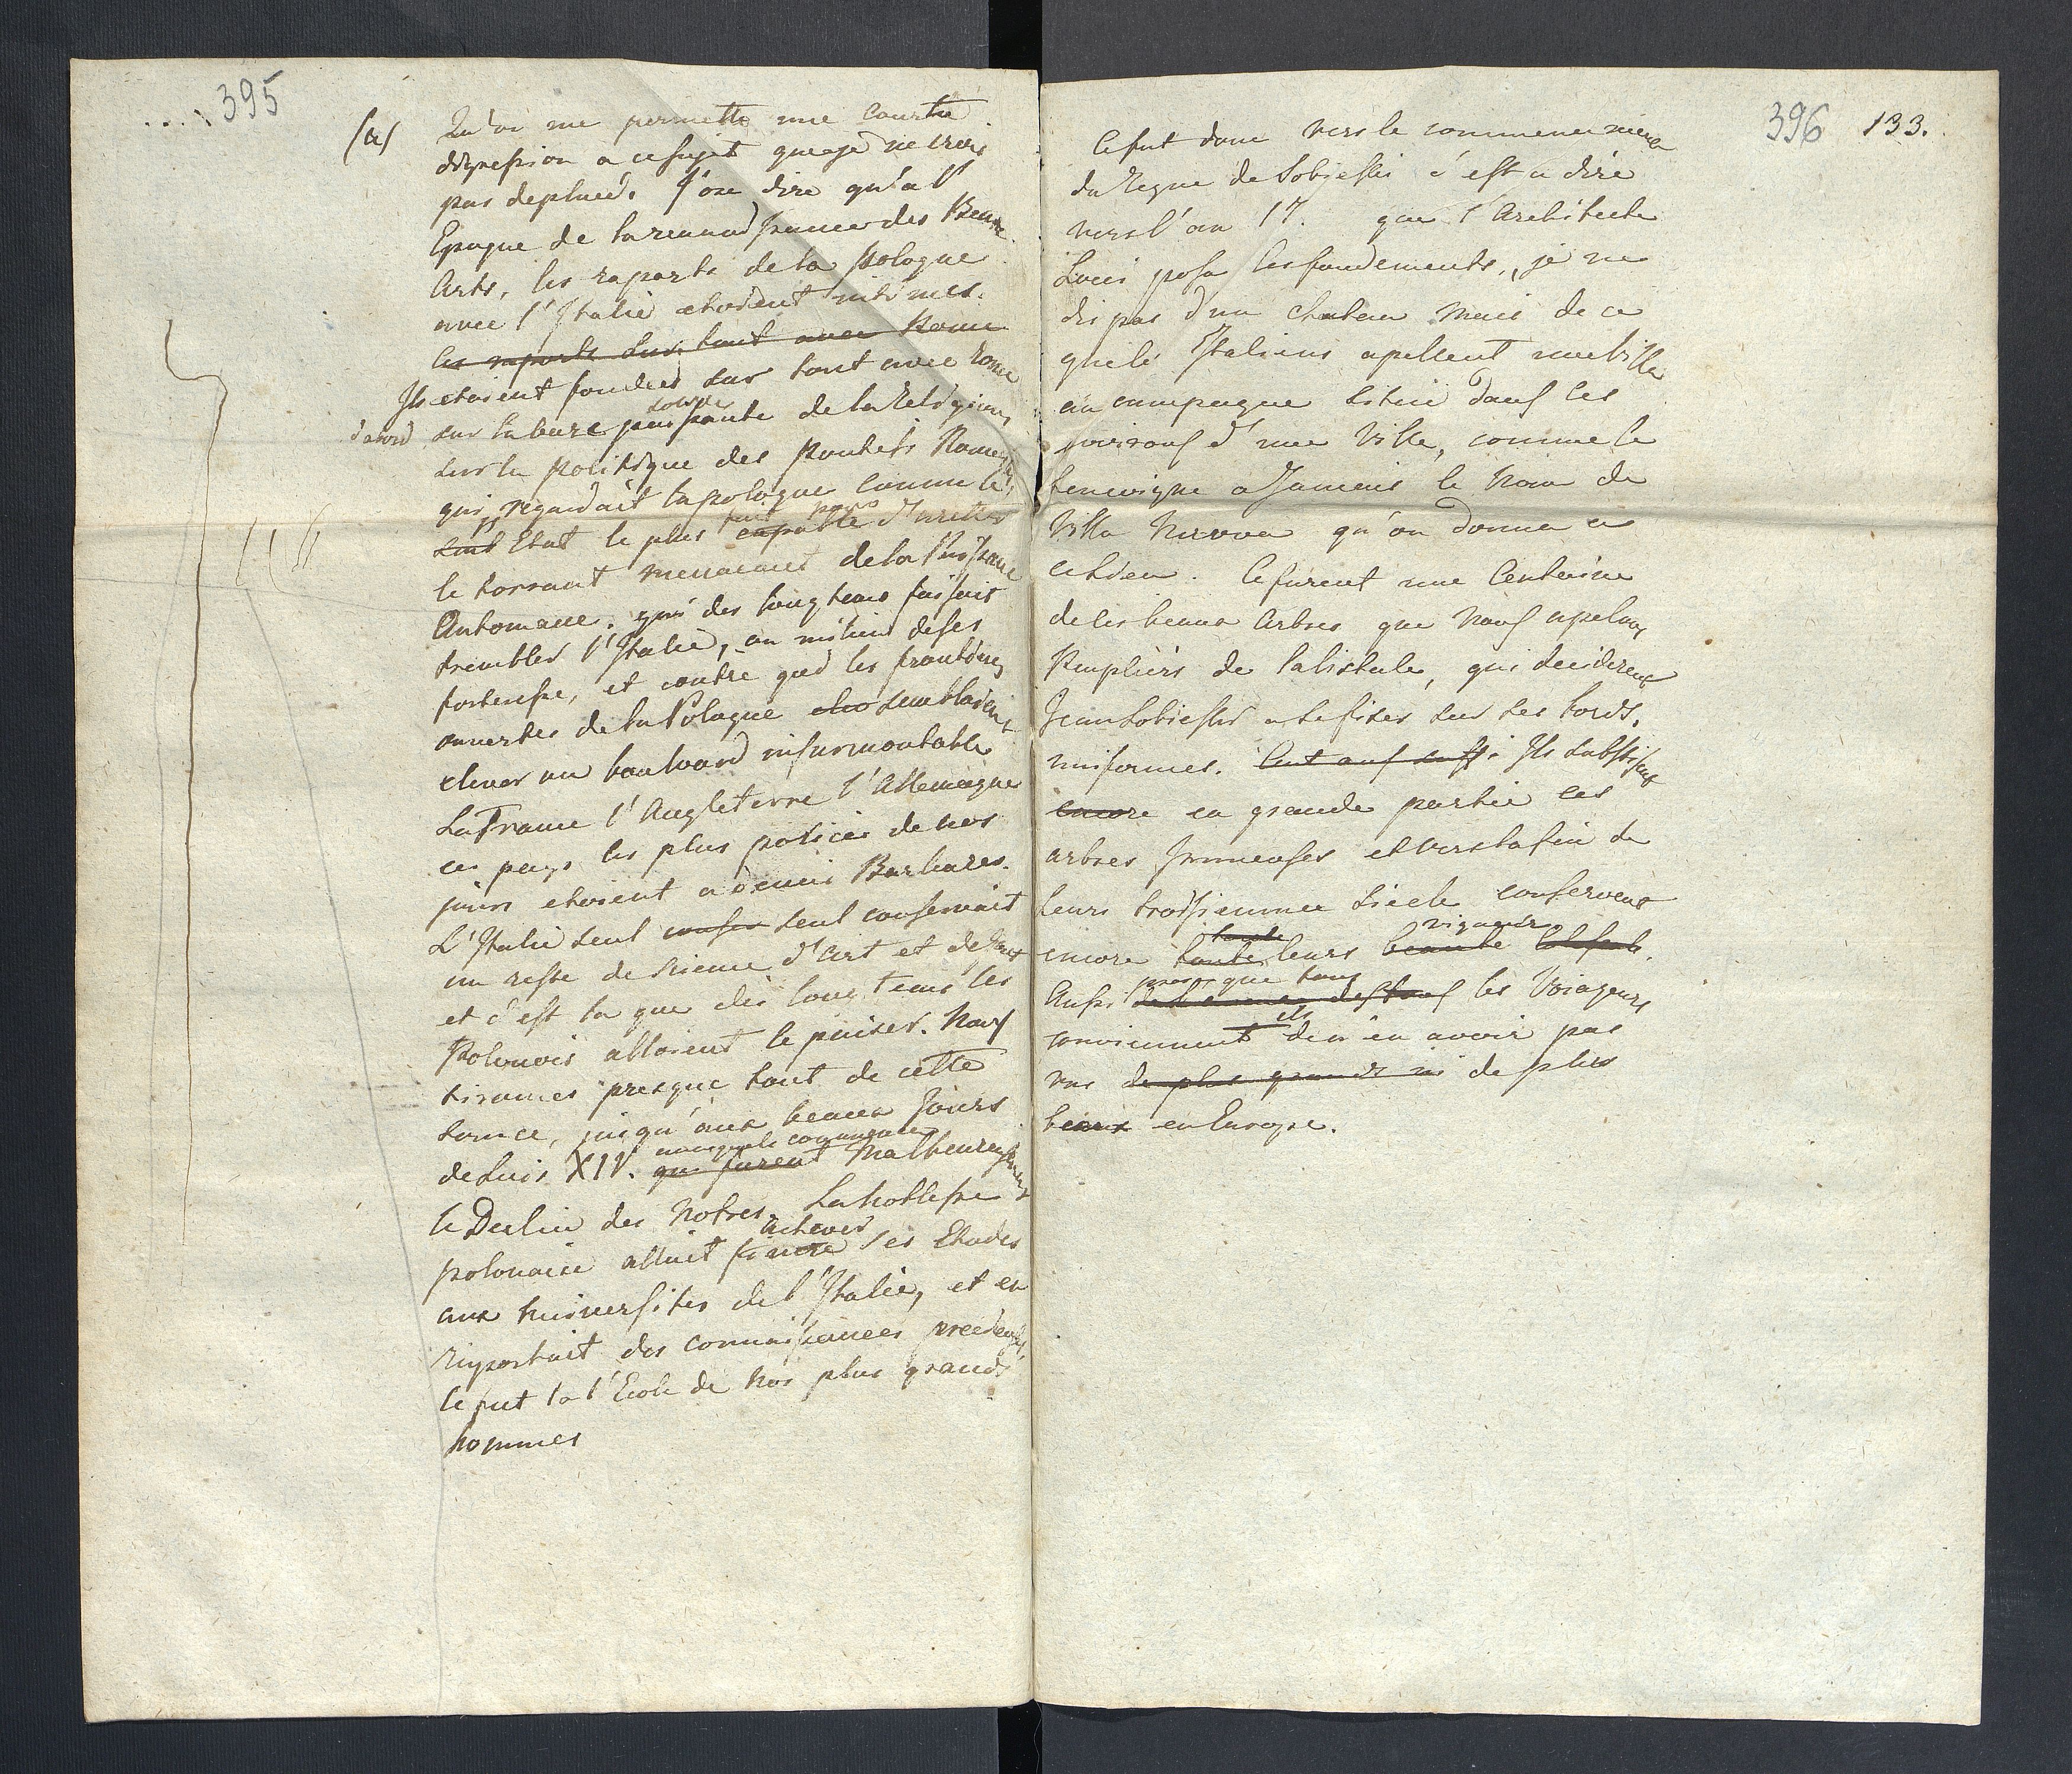 395
(a) Qu'on me permette une courte
digression a ce sujet que je ne crois
pas deplacée. J'ose dire qu'a l'
Epoque de la renaissance des Beaux
Arts, les raports de la Pologne
avec l'Italie etoient intimes.
les raports sur tout avec Rome
Ils etoient fondés sur tout avec Rome
d'abord sur la base puissante solide de la Religion,
sur la politique des pontifs Romains
qui regardait la pologne comme le
seul Etat le plus capable fait pour d'arreter
le torrent menacant de la Puissance
Ottomane, qui des longtems faisoit
trembler l'Italie, au milieu de ses
forteresse, et contre qui les frontieres
ouvertes de la Pologne sembloient
elever un boulevard insurmontable
La France l'Angleterre l'Allemagne
ces pays les plus policés de nos
jours etoient a demi Barbares.
L'Italie seul conser seul conservait
un reste de Science d'Art et de Gout
et c'est la que des long tems les
Polonois alloient le puiser. Nous
tirames presque tout de cette
source, jusqu'aux beaux Jours
de Luis XIV. qui furent malheureusement
le Declin des notres. La Noblesse
polonaise alloit finire achever ses Etudes
aux Universites de l'Italie, et en
raportait des connaissances precieuses.
Ce fut la l'Ecole de nos plus grands
hommes
396 133.
Ce fut donc vers le commencement
du Regne de Sobieski c'est a dire
vers l'an 17. que l'Architecte
Locci posa les fondements, je ne
dis pas d'un chateau mais de ce
que les Italiens apellent une Villa
une campagne située dans les
environs d'une Ville, comme le
temoigne a Jamais le nom de
Villa Nuova qu'on donna a
ce lieu. Ce furent une Centaine
de ces beaux Arbres que nous apelons
Peupliers de la Vistule, qui deciderent
Jean Sobieski a se fixer sur ses bords.
uniformes. Ils subsistent
encore en grande partie ces
arbres Immenses et vers la fin de
leurs troisiemme Siecle conservent
encore toute toute leurs beauté vigueur
Aussi presque tous les Voiageurs
conviennent ils de n'en avoir pas
vus de plus grands ni de plus
beaux en Europe.